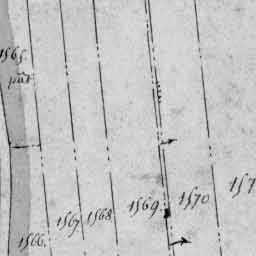 1565.
1566.
1567
1568
1569
1570
157